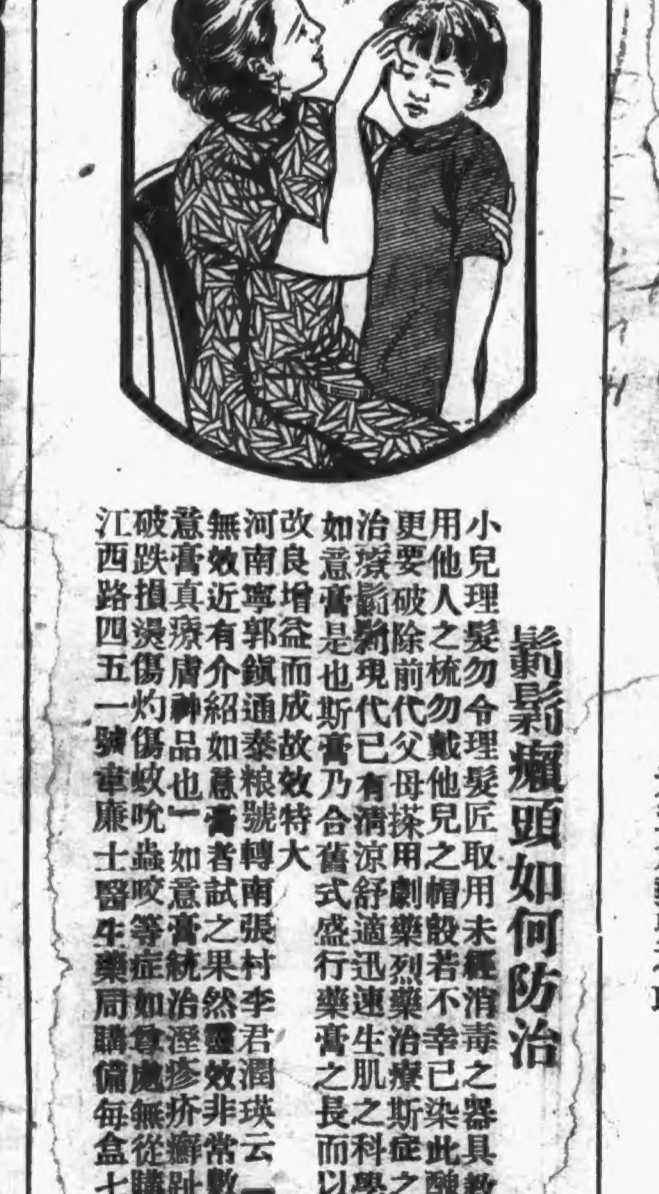 鬎鬁癩頭如何防治
小兒理髮勿令理髮匠取用未經消毒之器具敎
用他人之梳勿戴他兒之帽設若不幸已染此醜
更要破除前代父母採用劇藥烈藥治療斯症之
治療鬎鬁現代已有清涼舒適迅速生肌之科學
如意膏是也斯膏乃合舊式盛行藥膏之長而以
改良增益而成故效特大
河南寧郭鎭通泰粮號轉南張村李君潤瑛云
無效近有介紹如意膏者試之果然靈效非常數
意膏真療膚神品也」如意膏統治溼疹疥癬趾
破跌損燙傷灼傷蚊吮蟲咬等症如貴處無從購
江西路四五一號韋廉士醫生藥局購備每盒七